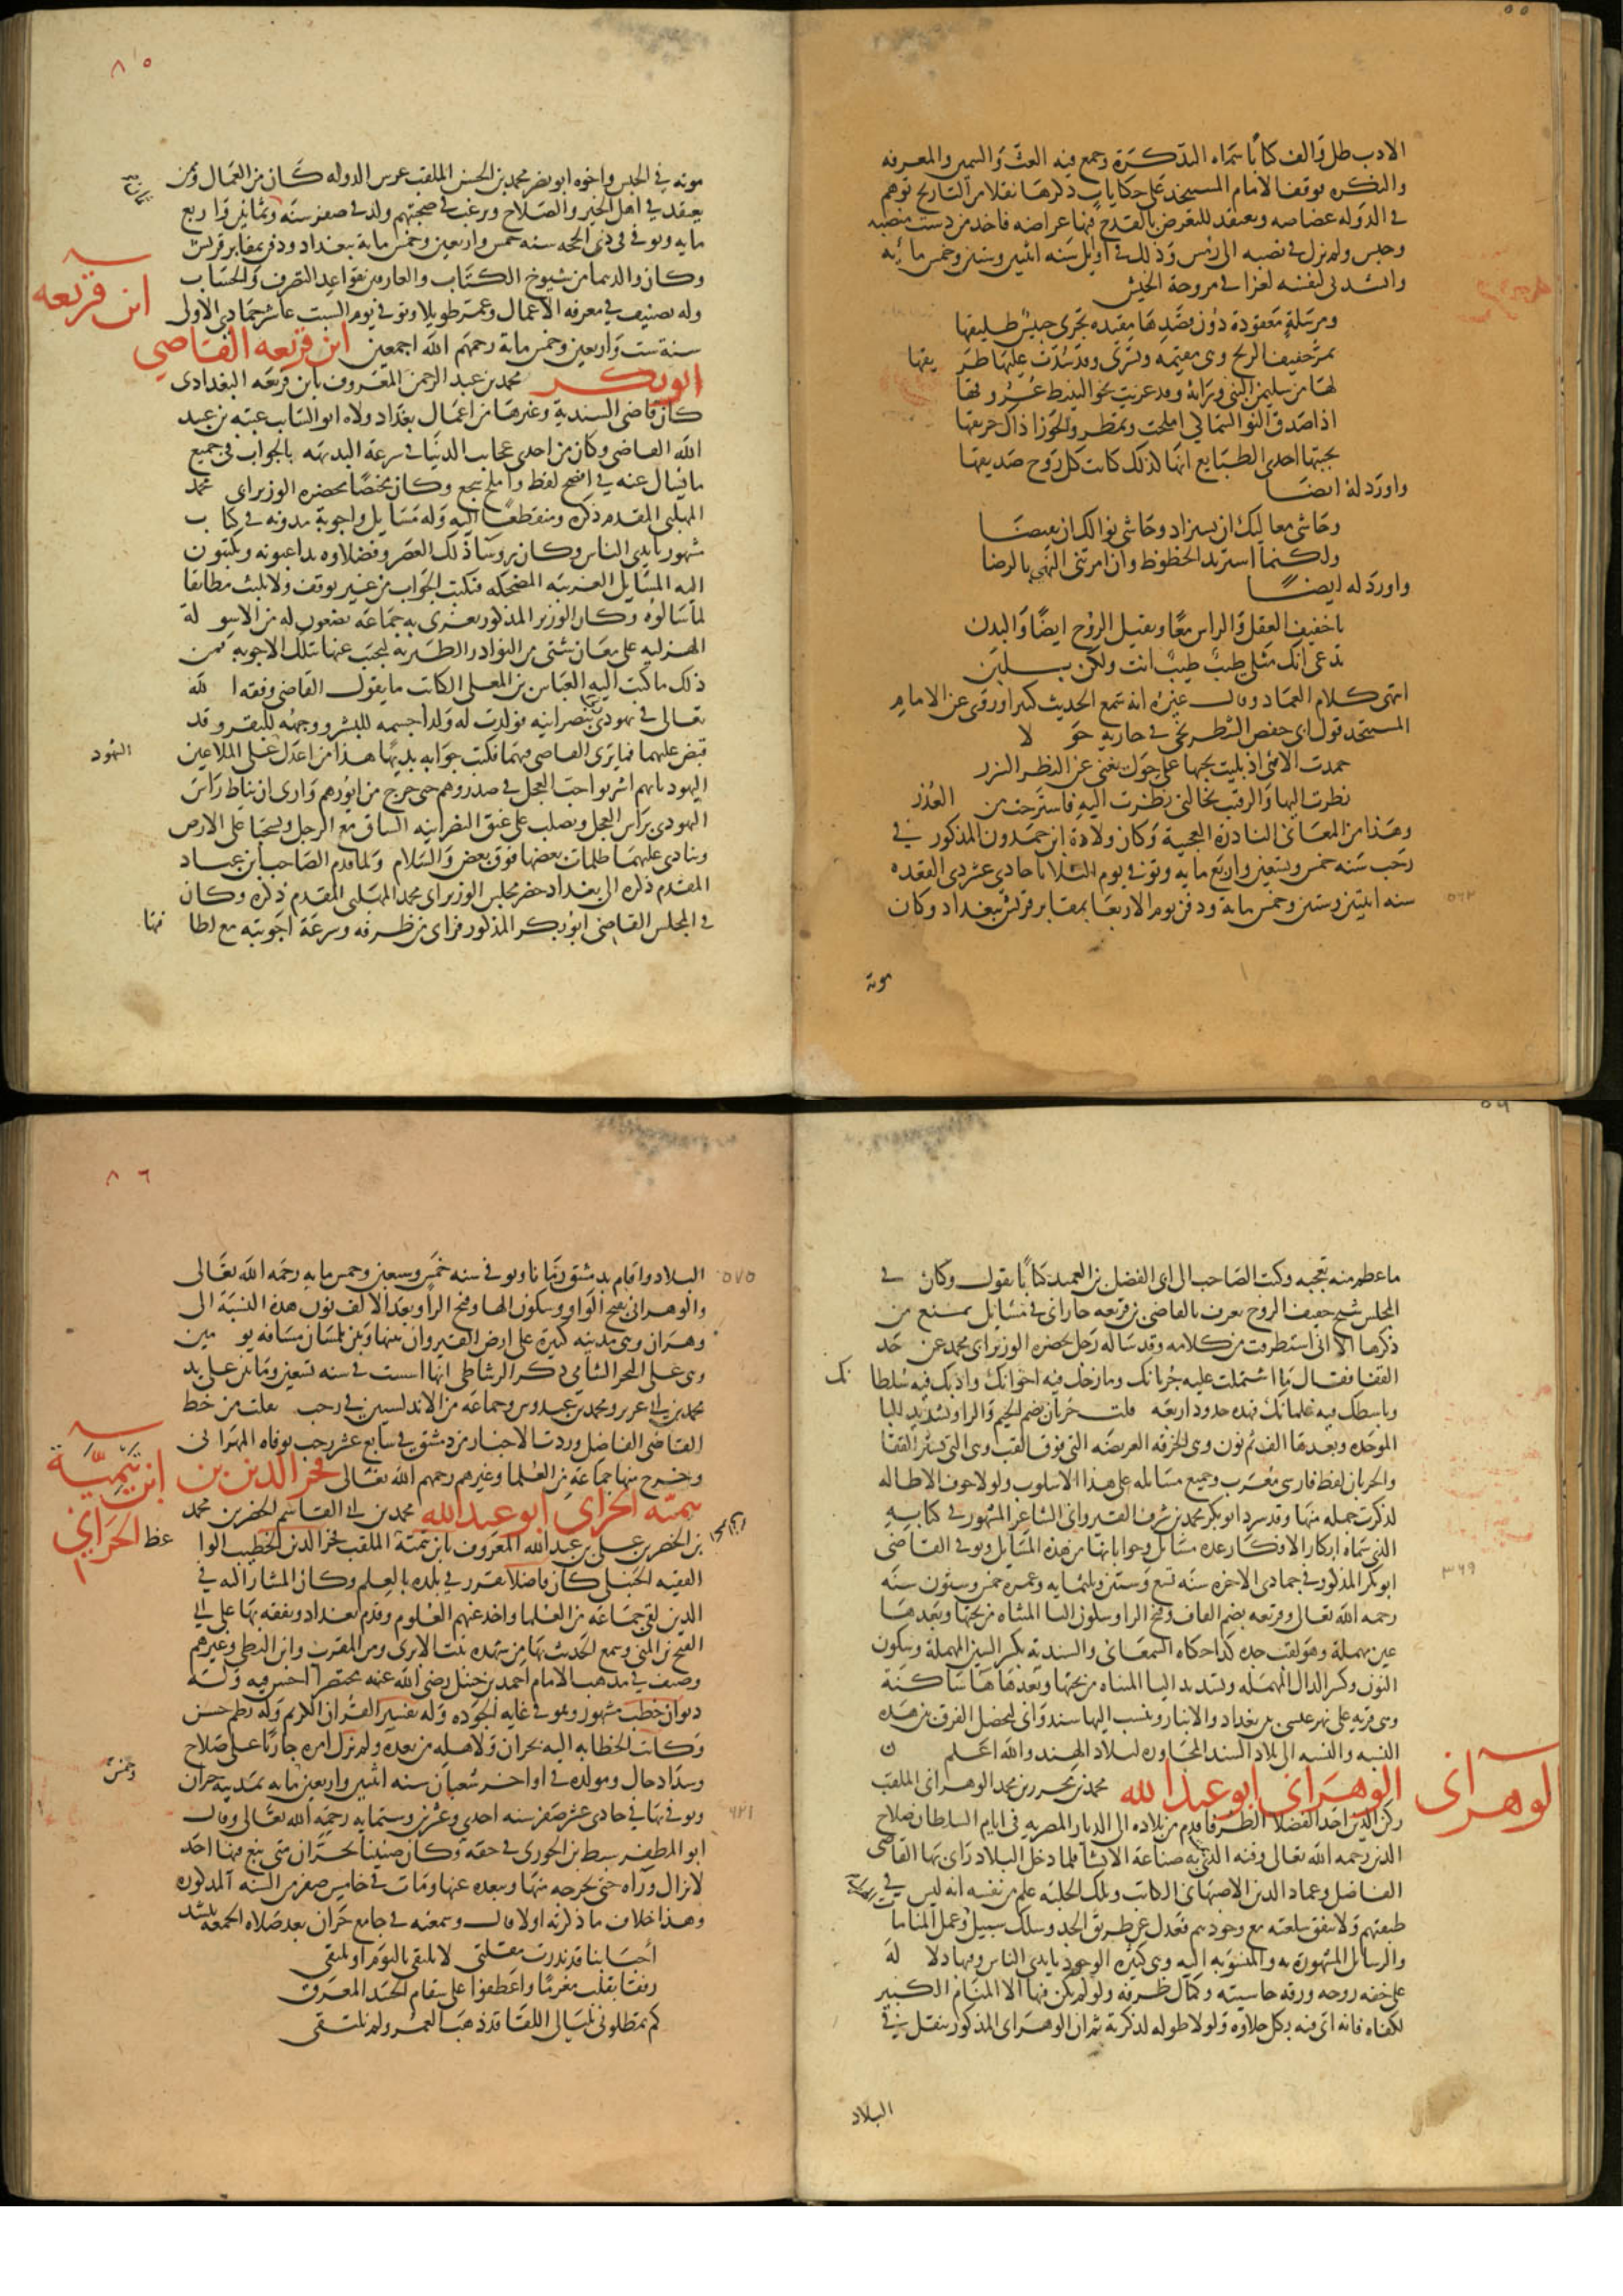 الادب طل والف كتابا سماه التذكرة وجمع فيه الغث والسمين والمعرفه
والنكره فوقف الامام المستنجد على حكايات ذكرها نقلا من التاريخ توهم
في الدوله غضاضه ويعتقد للتعرض بالقدح فيها اغراضه فاخذ من دست منصبه
وحبس ولم يزل في نصبه الى ان رمس وذلك في اوايل سنه اثنين وستين وخمس مائه
وانشدني لنفسه لغزا في مروحة الخيش
ومرسلة معقودة دون قصدها مقيده تجري حبيس طليقها
تمر خفيف الريح وهي مقيمه وتسري وقد سدت عليها طريقها
لها من سليمن النبي وراثة وقد عزيت نحو النبيط عروقها
اذا صدق النو السماكي امحلت وتمطر والجوزا ذاك حريقها
تحيتها احدى الطبايع انها لذلك كانت كل روح صديقها
واورد له ايضا
وحاشى معاليك ان تستزاد وحاشى نوالك ان يقتضا
ولكنما استزيد الحظوظ وان امرتني النهى بالرضا
واورد له ايضا
يا خفيف العقل والراس معا وثقيل الروح ايضا والبدن
تدعي انك مثلي طيب طيب انت ولكن بلبن
انتهى كلام العماد وقال غيره انه سمع الحديث كثيرا وروى عن الامام
المستنجد قول ابي حفص الشطرنجي في جارية حولا
حمدت الاهي اذ بليت بحبها على حول يغني عن النظر الشزر
نظرت اليها والرقيب يخالني نظرت اليه فاسترحت من العذر
وهذا من المعاني النادرة العجيبة وكان ولادة ابن حمدون المذكور في
رجب سنه خمس وتسعين واربع مايه وتوفي يوم الثلاثا حادي عشر ذي القعده
سنه اثنتين وستين وخمس مايه ودفن يوم الاربعا بمقابر قريش ببغداد وكان
٥٦٢
موته
٨٥
موته في الحبس واخوه ابو نصر محمد بن الحسن الملقب غرس الدوله كان من العمال وممن
يعتقد في اهل الخير والصلاح ويرغب في صحبتهم ولد في صفر سنه وثمانين واربع
مايه وتوفي في ذي الحجه سنه خمس واربعين وخمس ماية ببغداد ودفن بمقابر قريش
وكان والدهما من شيوخ الكتاب والعارفين بقواعد التصرف والحساب
وله تصنيف في معرفه الاعمال وعمر طويلا وتوفي يوم السبت عاشر جمادي الاولى
ابن قريعه
سنة ست واربعين وخمس ماية رحمهم الله اجمعين ابن قريعه القاضي
ابو بكر محمد بن عبد الرحمن المعروف بابن قريعه البغدادي
كان قاضي السندية وغيرها من اعمال بغداد ولاه ابو السايب عتبه بن عبيد
الله القاضي وكان من احدى عجايب الدنيا في سرعة البديهه بالجواب في جميع
ما يسال عنه في افصح لفظ واملح سجع وكان مختصا بحضرة الوزير ابي محمد
المهلبي المقدم ذكره ومنقطعا اليه وله مسايل واجوبة مدونه في كتاب
مشهور بايدي الناس وكان روسا ذلك العصر وفضلاوه يداعبونه ويكتبون
اليه المسايل الغريبه المضحكه فيكتب الجواب من غير توقف ولا تلبث مطابقا
لما سالوه وكان الوزير المذكور يغري به جماعه يضعون له من الاسوله
الهزليه على معان شتى من النوادر الطنزيه ليجيب عنها بتلك الاجوبة فمن
ذلك ما كتب اليه العباس بن المعلى الكاتب ما يقول القاضي وفقه الله
تعالى في يهودي زنى بنصرانيه فولدت له ولدا جسمه للبشر ووجهه للبقر وقد
قبض عليهما فما يرى القاضي فيهما فكتب جوابه بديها هذا من اعدل على الملاعين اليهود
اليهود بانهم اشربوا حب العجل في صدورهم حتى خرج من ايورهم وارى ان يناط راس
اليهودي براس العجل ويصلب على عنق النصرانيه الساق مع الرجل ويسحبا على الارض
وينادى عليهما ظلمات بعضها فوق بعض والسلام ولما قدم الصاحب ابن عباد
المقدم ذكره الى بغداد حضر مجلس الوزير ابي محمد المهلبي المقدم ذكره وكان
في المجلس القاضي ابو بكر المذكور فراى من ظرفه وسرعة اجوبته مع لطافتها
٥٦
ما عظم منه تعجبه وكتب الصاحب الى ابي الفضل بن العميد كتابا يقول وكان في
المجلس شيخ خفيف الروح يعرف بالقاضي بن قريعه جاراني في مسايل يمنع من
ذكرها الا اني استظرفت من كلامه وقد ساله رجل بحضره الوزير ابي محمد عن حد
القفا فقال ما اشتملت عليه جربانك ومازحك فيه اخوانك وادبك فيه سلطانك
وباسطك فيه غلمانك فهذه حدود اربعه قلت جربان بضم الجيم والرا وتشديد البا
الموحده وبعدها الف ثم نون وهي الخرقه العريضه التي فوق القب وهي التي تستر القفا
والجربان لفظ فارسي معرب وجميع مسايله على هذا الاسلوب ولولا خوف الاطاله
لذكرت جمله منها وقد سرد ابو بكر محمد بن شرف القيرواني الشاعر المشهور في كتابه
الذي سماه ابكار الافكار عده مسايل وجواباتها من هذه المسايل وتوفي القاضي
ابو بكر المذكور في جمادى الاخره سنه تسع وستين وثلثمايه وعمره خمس وستون سنه
٣٦٩
رحمه الله تعالى وقريعه بضم القاف وفتح الرا وسكون اليا المثناه من تحتها وبعدها
عين مهملة وهو لقب جده كذا حكاه السمعاني والسندية بكسر السين المهملة وسكون
النون وكسر الدال المهمله وتشديد اليا المثناه من تحتها وبعدها هاء ساكنة
وهي قريه على نهر عيسى بين بغداد والانبار وينسب اليها سندواني ليحصل الفرق بين هذه
النسبه والنسبه الى بلاد السند المجاوره لبلاد الهند والله اعلم
الوهراني
الوهراني ابو عبد الله محمد بن محرز بن محمد الوهراني الملقب
ركن الدين احد الفضلا الظرفا قدم من بلاده الى الديار المصريه في ايام السلطان صلاح
الدين رحمه الله تعالى وفنه الذي يمت به صناعة الانشا فلما دخل البلاد راى بها القاضي
الفاضل وعماد الدين الاصبهاني الكاتب وتلك الحلبه علم من نفسه انه ليس في
طبقتهم ولا تنفق سلعته مع وجودهم فعدل عن طريق الجد وسلك سبيل الهزل وعمل المنامات
والرسايل المشهوره به والمنسوبه اليه وهي كثيره الوجود بايدي الناس وفيها دلاله
على خفه روحه ورقه حاشيته وكمال ظرفه ولو لم يكن فيها الا المنام الكبير
لكفاه فانه اتى فيه بكل حلاوه ولولا طوله لذكرته ثم ان الوهراني المذكور تنقل في
البلاد
٨٦
البلاد واقام بدمشق زمانا وتوفي في سنه خمس وسبعين وخمس مايه رحمه الله تعالى
٥٧٥
والوهراني بفتح الواو وسكون الها وفتح الرا وبعد الالف نون هذه النسبة الى
وهران وهي مدينه كبيرة على ارض القيروان بينها وبين تلمسان مسافه يومين
وهي على البحر الشامي ذكر الرشاطي انها اسست في سنه تسعين ومايتين على يد
محمد بن ابي عون ومحمد بن عبدوس وجماعه من الاندلسيين في رجب نقلت من خط
القاضي الفاضل وردت الاخبار من دمشق في سابع عشر رجب بوفاه الوهراني
وخرج منها جماعة من العلما وغيرهم رحمهم الله تعالى فخر الدين بن
ابن تيميّة الحراني
تيمية الحراني ابو عبد الله محمد بن ابي القاسم الخضر بن محمد
بن الخضر بن علي بن عبد الله المعروف بابن تيمية الملقب فخر الدين الخطيب الواعظ
الفقيه الحنبلي كان فاضلا تفرد في بلده بالعلم وكان المشار اليه في
الدين لقي جماعه من العلما واخذ عنهم العلوم وقدم بغداد وتفقه بها على ابي
الفتح بن المني وسمع الحديث بها من شهده بنت الابري وبن المقرب وابن البطي وغيرهم
وصنف في مذهب الامام احمد بن حنبل رضي الله عنه مختصرا احسن فيه وله
ديوان خطب مشهور وهو في غايه الجوده وله تفسير القران الكريم وله نظم حسن
وكانت الخطابه اليه بحران ولاهله من بعده ولم يزل امره جاريا على صلاح
وسداد حال ومولده في اواخر شعبان سنه اثنين واربعين مايه بمدينة حران
وخمس
وتوفي بها في حادي عشر صفر سنه احدى وعشرين وستمايه رحمه الله تعالى وقال
٦٢١
ابو المظفر سبط بن الجوزي في حقه وكان ضنينا بحران متى نبغ فيها احد
لا يزال وراه حتى يخرجه منها ويبعده عنها ومات في خامس صفر من السنه المذكوره
وهذا خلاف ما ذكرته اولا قال وسمعته في جامع حران بعد صلاه الجمعه ينشد
احبابنا قد نذرت مقلتي لا تلتقي بالنوم او نلتقي
رفقا بقلب مغرم واعطفوا على سقام الجسد المغرق
كم تمطلوني بليالي اللقا قد ذهب العمر ولم نلتقي